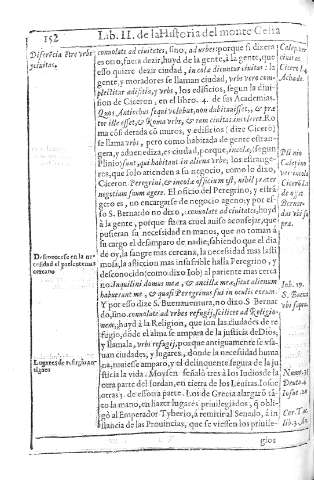 152 Lib. II. de la Historia del monte Celia
Diferēcia ētre vrbs
y ciuitas.
conuolate ad ciuitates, sino, ad vrbes: porque si dixera
esso, fuera dezir, huyd de la gente, à la gente, que
esso quiere dezir ciudad,
gente, y moradores se llaman ciudad, vrbs vero com-
plectitur ædificia, y vrbs, los edificios, segun la diui-
sion de Ciceron, en el libro. 4. de sus Academias.
Ro
ma cōsiderada cō muros, y edificios (dize Cicero)
se llama vrbs, pero como habitada de gente estran-
gera, y aduenediza, es ciudad, porque, incolæ, (segun
Plinio) sunt, qui habitant in aliena vrbe; los estrange-
ros, que solo atienden a su negocio, como lo dixo,
Ciceron. Peregrini, & incolæ officium est, nihil præter
negotium suum agere. El oficio del Peregrino, y estrā-
gero es, no encargarse de negocio ageno; y por es-
so S. Bernardo no dixo, conuolate ad ciuitates, huyd
à la gente, porque fuera cruel auiso aconsejar, que
pusieran su necessidad en manos, que no toman à
su cargo el desamparo de nadie; sabiendo que el dia
de oy, la sangre mas cercana, la necessidad mas lasti
mosa, la afliccion mas infalsible halla Peregrino, y
desconocido; como dixo Iob; al pariente mas cerca
no. Inquilini domus meæ, & ancillæ meæ, sicut alienum
habuerunt me, & quasi Peregrinus fui in oculis eorum.
Y por esso dize S. Buenauentura, no dixo S. Bernar
do, sino, conuolate ad vrbes refugij, scilicet ad Religio-
nem, huyd à la Religion, que son las ciudades de re-
fugio, dōde el alma se ampara de la justicia de Dios;
y llamala, vrbis refugij, porque antiguamente se vsa-
uan ciudades, y lugares, donde la necessidad huma
na, tuuiesse amparo, y el delinquente segura de la ju
sticia la vida. Moysen señalò tres à los Iudios de la
otra parte del Iordan, en tierra de los Leuitas. Iosue
otras 3. de essotra parte. Los de Grecia alargarō tā-
to la mano, en hazer lugares priuilegiados, q̄ obli-
gò al Emperador Tyberio, à remitir al Senado, à in
stancia de las Prouincias, que se viessen los priuile-
gios
Desconocese en la ne
cessidad el pariente mas
cercano
Lugares de refugio an-
tiguos
Iob. 19.
S. Buena
Num. 35
Deut. 4
Iosue. 20
Cor. Tac.
lib. 3.